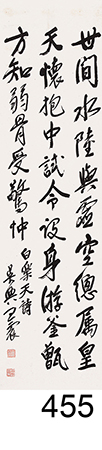 世間水陸與靈空總屬皇
天懷抱中試令設身游釜甑
方知弱骨受驚忡
白樂天詩
吳興王震
455